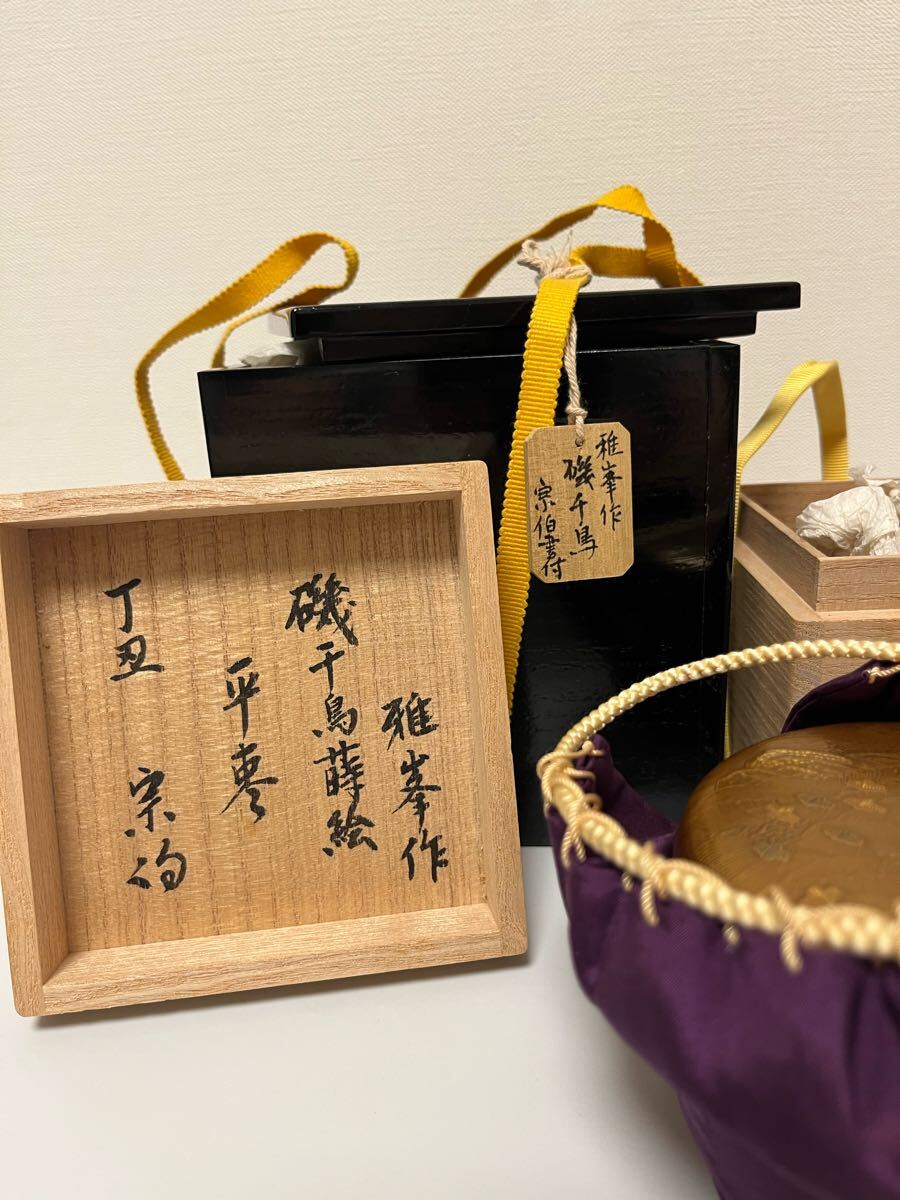 雅峯作
磯千鳥蒔絵
平棗
丁丑 宗伯
雅峯作
磯千鳥
宗伯書付